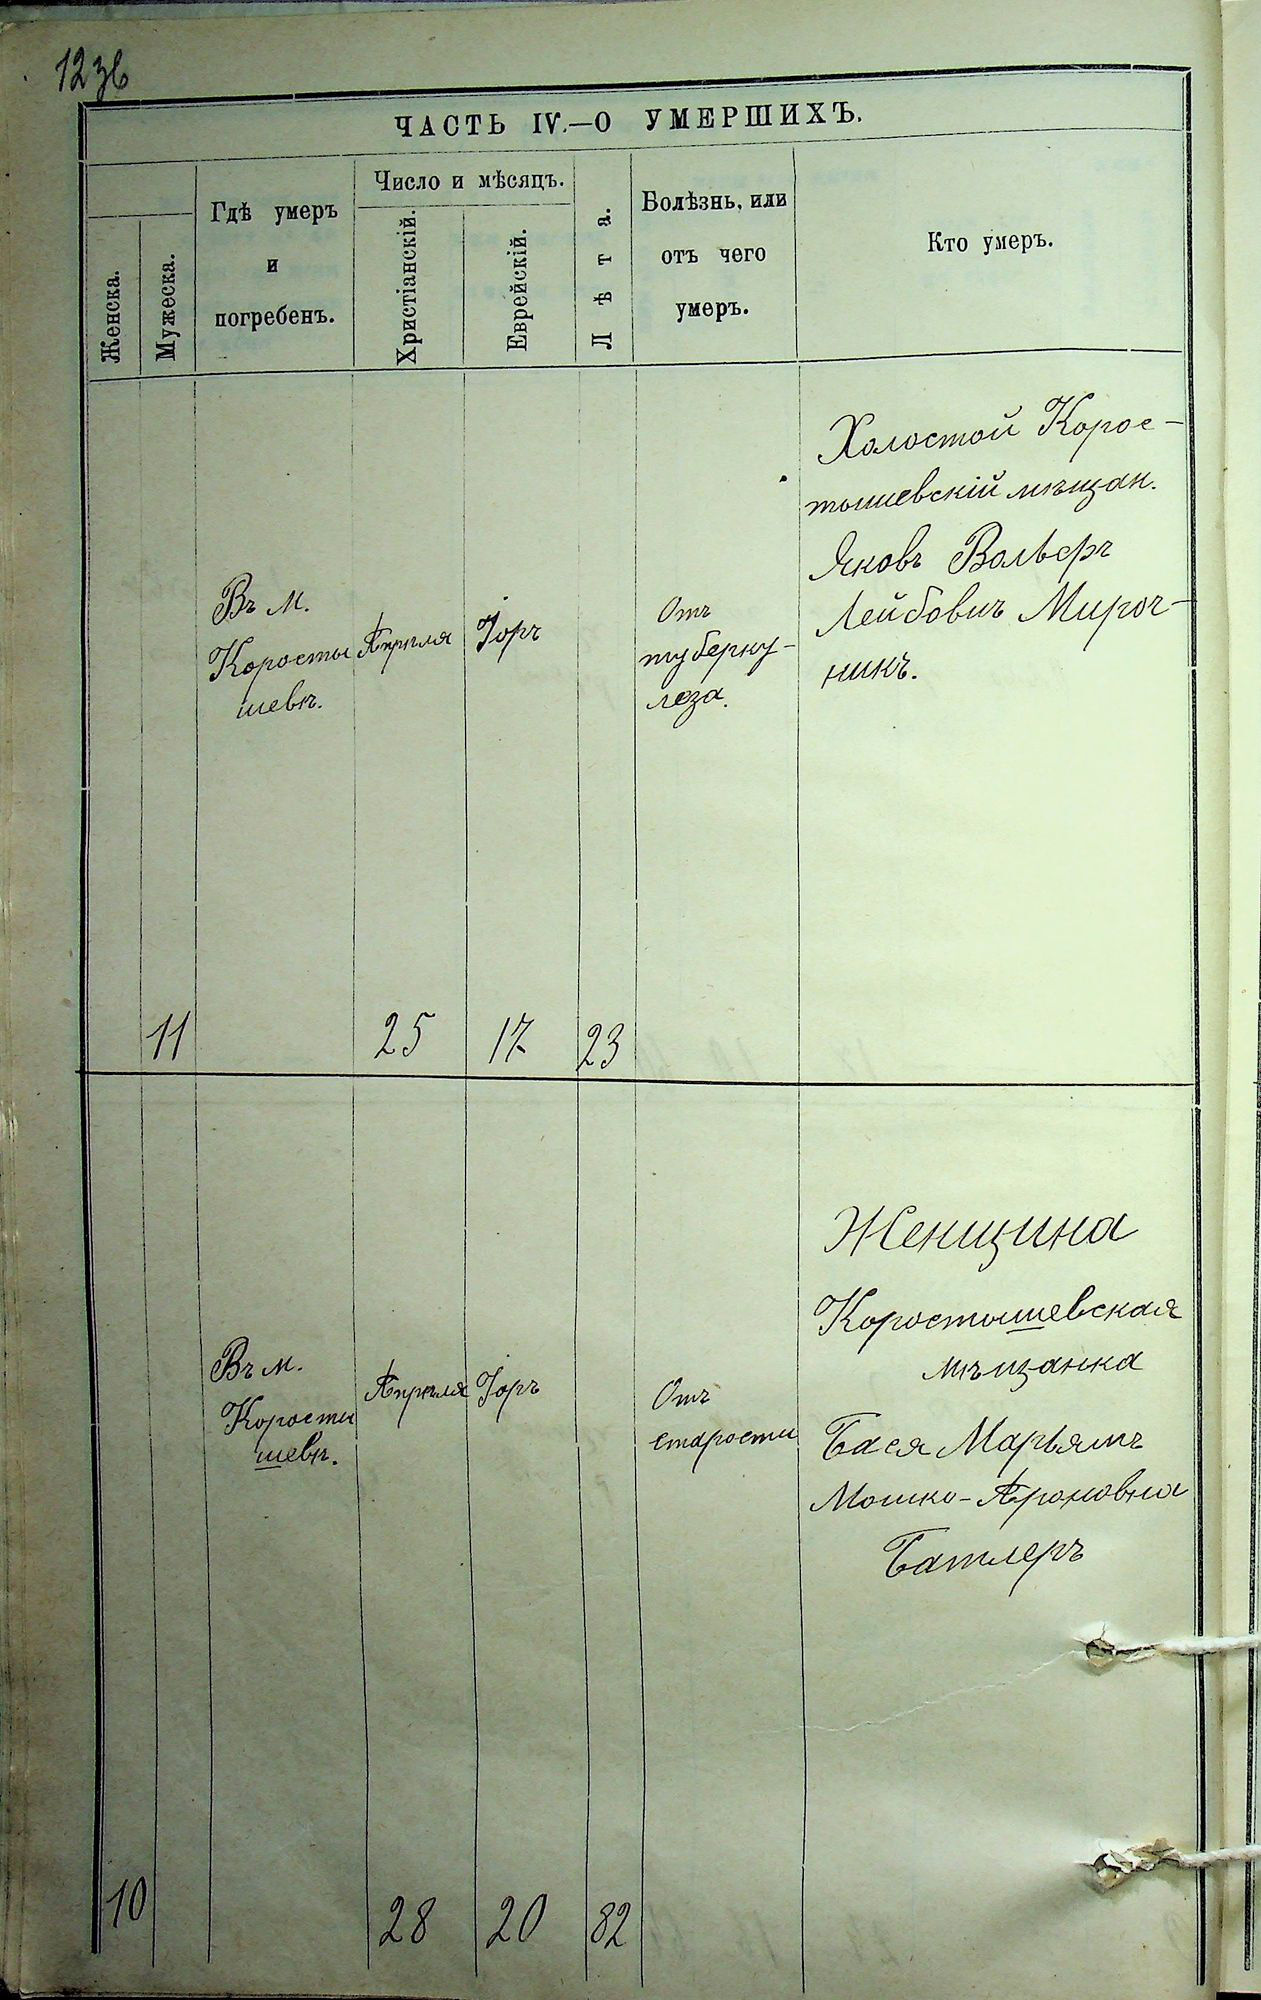 123б
ЧАСТЬ IV.—О УМЕРШИХЪ.
Женска.
Мужеска.
Гдѣ умеръ
и
погребенъ.
Число и мѣсяцъ.
Христіанскій.
Еврейскій.
Лѣта.
Болѣзнь, или
отъ чего
умеръ.
Кто умеръ.
11
Въ м.
Коросты
шевѣ.
Апрѣля
25
Іоръ
17
23
Отъ
туберку-
леза.
Холостой Корос-
тышевскій мѣщан.
Яковъ Вольфъ
Лейбовичъ Мироч-
никъ.
10
Въ м.
Коросты
шевѣ.
Апрѣля
28
Іоръ
20
82
Отъ
старости
Женщина
Коростышевская
мѣщанка
Бася Марьямъ
Мошко-Ароновна
Батлеръ